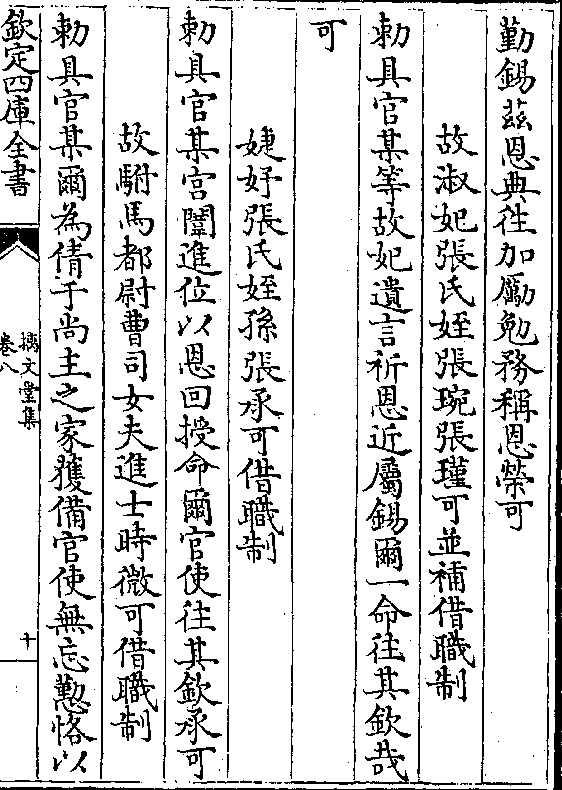 勤錫茲恩典徃加勵勉務稱恩榮可
故淑妃張氏姪張琬張瑾可並補借職制
勅具官某等故妃遺言祈恩近屬錫爾一命往其欽哉
可
婕妤張氏姪孫張承可借職制
勅具官某宫闈進位以恩回授命爾官使往其欽承可
故駙馬都尉曹司女夫進士時微可借職制
勅具官某爾為倩于尚主之家獲備官使無忘懃恪以
欽定四庫全書
摛文堂集
卷八
十